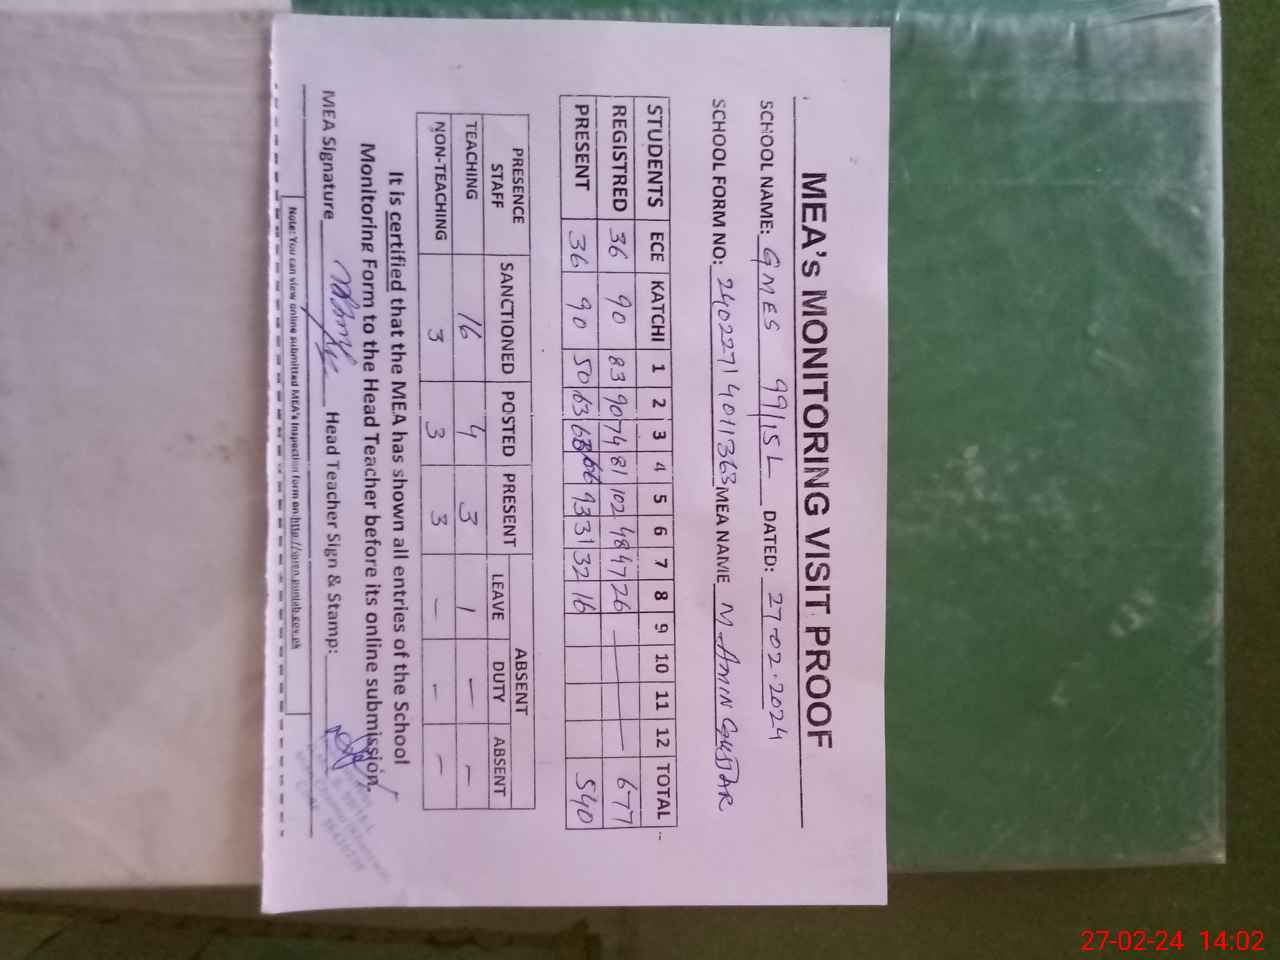 MEA's MONITORING VISIT PROOF
SCHOOL NAME: GMES 99/15L DATED: 27-02-2024
SCHOOL FORM NO: 24022714011363 MEA NAME M. AMIN
STUDENTS ECE KATCHI 1 2 3 4 5 6 7 8 9 10 11 12 TOTAL
REGISTRED 36 90 83 90 74 81 102 48 47 26 677
PRESENT 36 90 50 63 63 66 93 31 32 16 540
PRESENCE STAFF SANCTIONED POSTED PRESENT ABSENT
LEAVE DUTY ABSENT
TEACHING 16 4 3 1 — —
NON-TEACHING 3 3 3 — — —
It is certified that the MEA has shown all entries of the School
Monitoring Form to the Head Teacher before its online submission.
MEA Signature Head Teacher Sign & Stamp:
Note: You can view online submitted MEA's inspection form on http://open.punjab.gov.pk
27-02-24 14:02